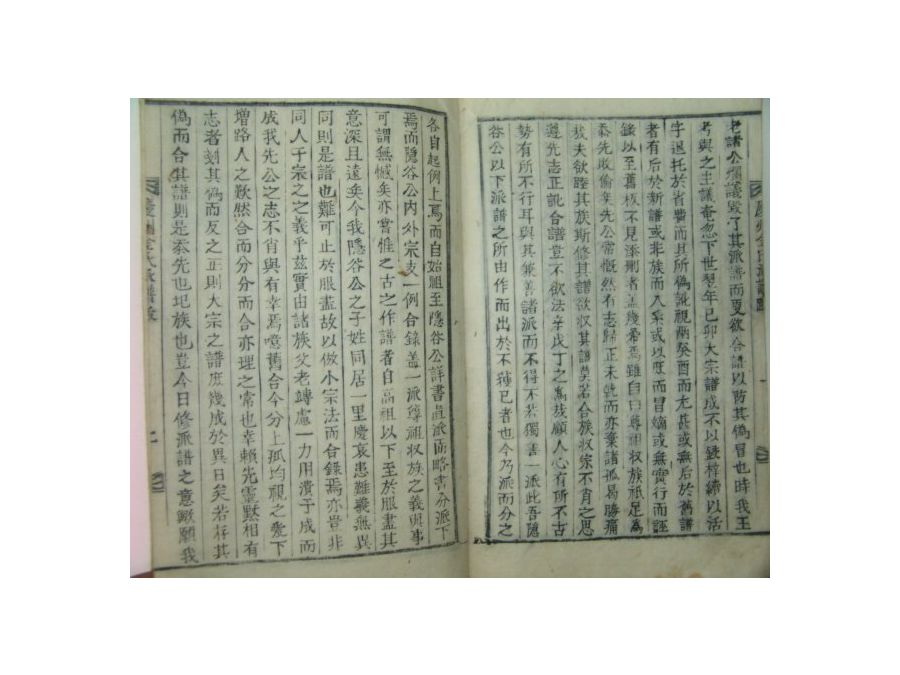 老諸公爛議毀了其派譜而更欲合譜以防其僞冒也時我王
考與之主議奄忽下世翌年己卯大宗譜成不以鋟梓締以活
字退托於者嚮而且所僞訛視丙癸酉而尤甚或無后於舊譜
者有后於新譜或非族而入系或以庶而冒嫡或無實行而誣
錄以至舊板不見添刪者盖幾希焉雖自曰尊祖收族祇足為
忝先敗倫矣先公常慨然有志歸正未就而亦棄諸孤曷勝痛
㢤夫欲睦其族斯修其譜欲収其譜莫若合族収宗不肖之思
遵先志正訛合譜豈不欲法辛戊丁之為㢤顧人心有所不古
勢有所不行耳與其兼善諸派而不得不若獨善一派此吾隱
谷公以下派譜之所由作而出於不獲已者也今乃派而分之
各自起例上焉而自始祖至隱谷公詳書直派而略書分派下
焉而隱谷公內外宗支一例合錄盖一派尊祖収族之義與事
可謂無憾矣亦嘗惟之古之作譜者自高祖以下至於服盡其
意深且遠矣今我隱谷公之子姓同居一里慶哀患難義無異
同則是譜也難可止於服盡故以倣小宗法而合錄焉亦豈非
同人于宗之之義乎茲實由諸族文老竱慮一力用潰于成而
成我先公之志不肖與有幸焉噫舊合今分上孤均視之愛下
增路人之歎然合而分分而合亦理之常也幸賴先靈黙相有
志者刻其僞而反之正則大宗之譜庶幾成於異日矣若存其
僞而合其譜則是忝先也圮族也豈今日修派譜之意歟願我
慶州金氏派譜跋
二
慶州金氏派譜跋
一